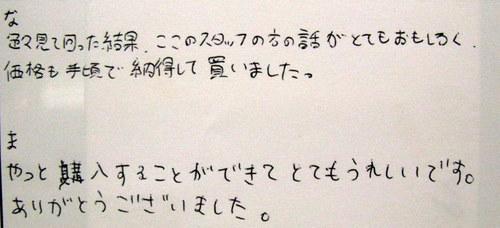 な
色々見て回った結果、ここのスタッフの方の話がとてもおもしろく、
価格も手頃で納得して買いましたっ
ま
やっと購入することができてとてもうれしいです。
ありがとうございました。